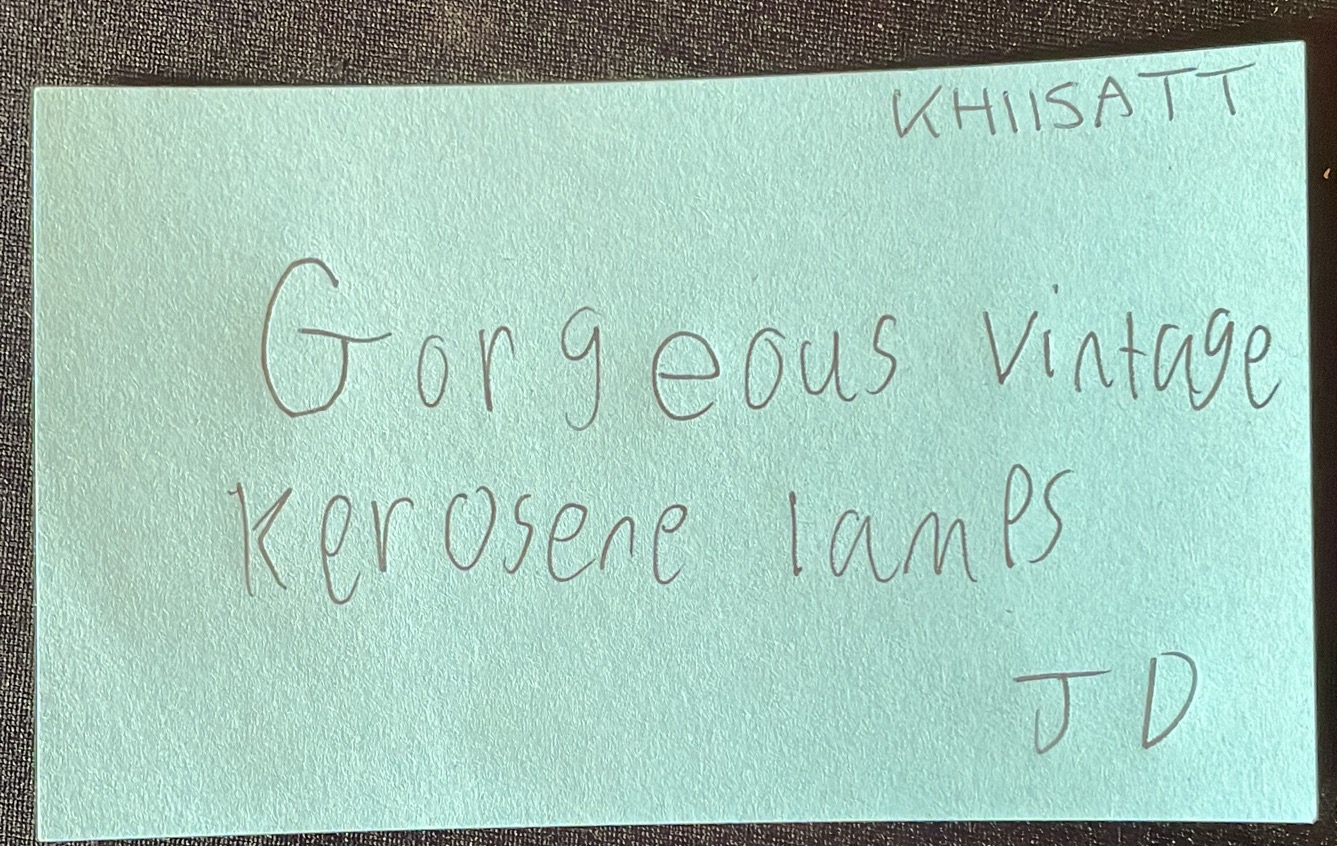 KHIISATT
Gorgeous vintage
kerosene lamps
JD